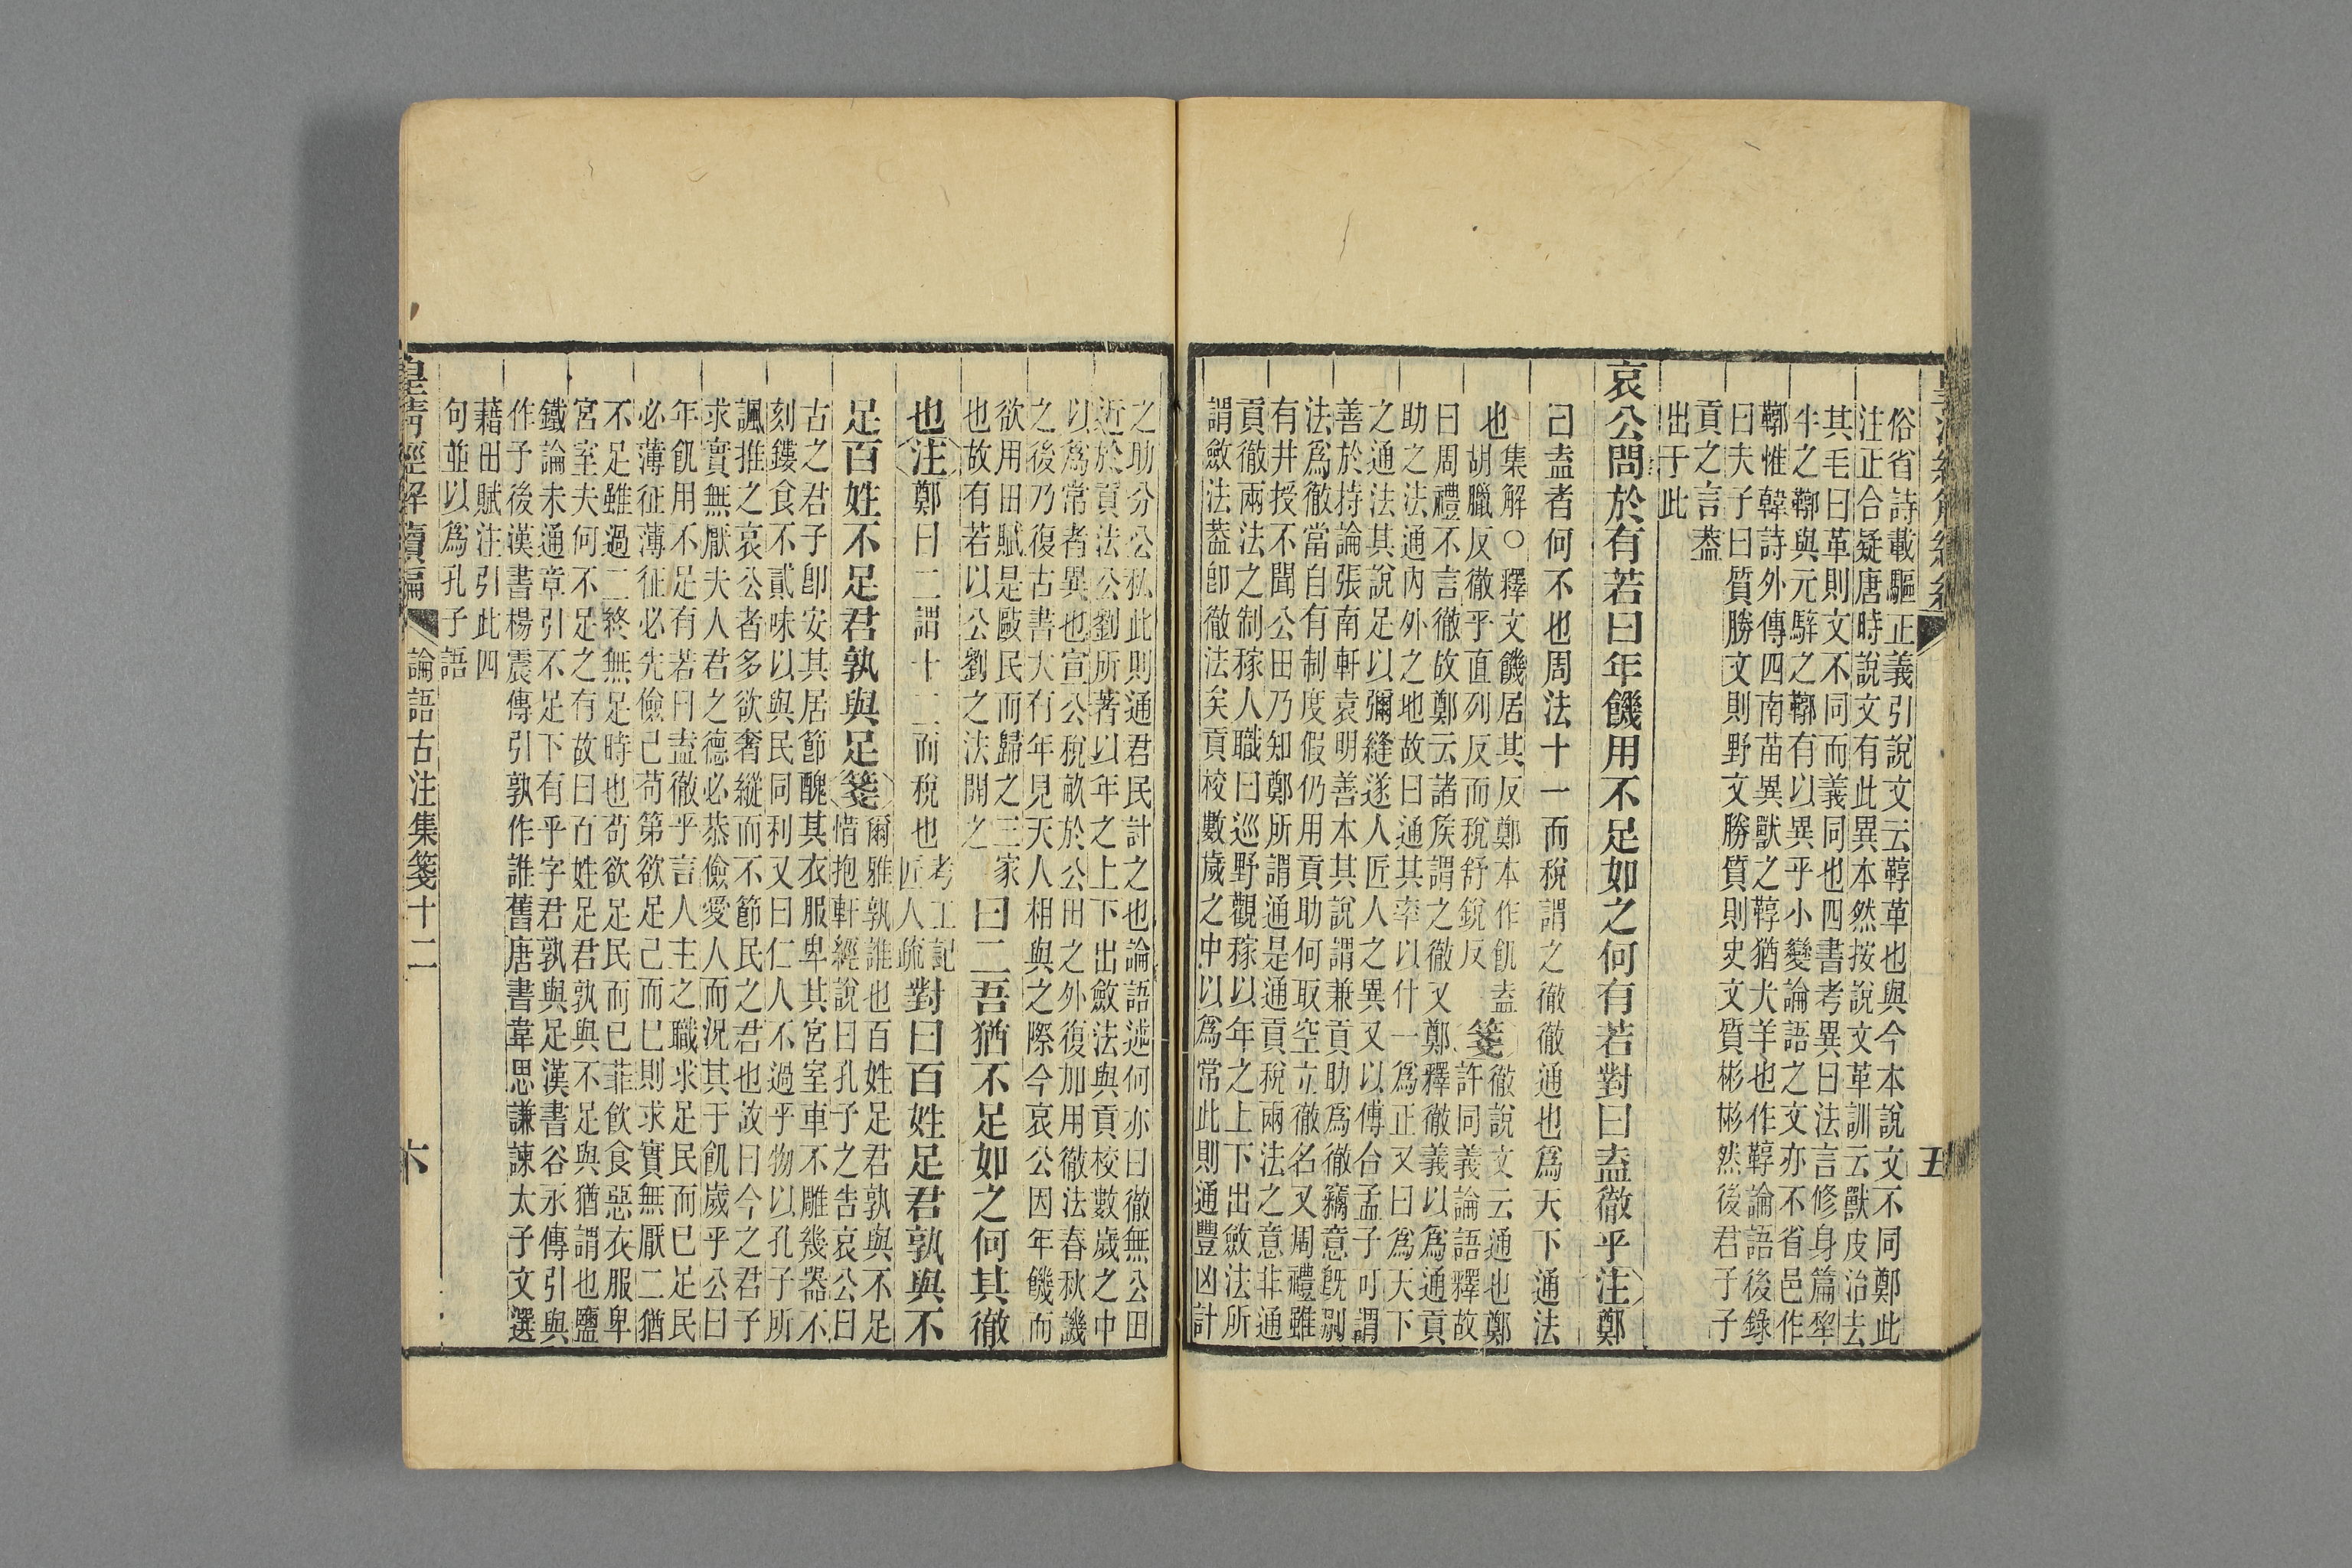 俗省詩載驅正義引說文云鞟革也與今本說文不同鄭此
注正合疑唐時說文有此異本然按說文革訓云獸皮治去
其毛曰革則文不同而義同也四書考異曰法言修身篇犂
牛之鞹與元騂之鞹有以異乎小變論語之文亦不省邑作
鞹惟韓詩外傳四南苗異獸之鞟猶犬羊也作鞟論語後錄
曰夫子曰質勝文則野文勝質則史文質彬彬然後君子子
貢之言葢
出于此
哀公問於有若曰年饑用不足如之何有若對曰盍徹乎注鄭
曰盍者何不也周法十一而稅謂之徹徹通也爲天下通法
也
集解○釋文饑居其反鄭本作飢盍
胡臘反徹乎直列反而稅舒銳反
箋
徹說文云通也鄭
許同義論語釋故
曰周禮不言徹故鄭云諸矦謂之徹又鄭釋徹義以爲通貢
助之法通內外之地故曰通其率以什一爲正又曰爲天下
之通法其說足以彌縫遂人匠人之異又以傅合孟子可謂
善於持論張南軒袁明善本其說謂兼貢助爲徹竊意旣別
法爲徹當自有制度假仍用貢助何取空立徹名又周禮雖
有井授不聞公田乃知鄭所謂通是通貢稅兩法之意非通
貢徹兩法之制稼人職曰巡野觀稼以年之上下出斂法所
謂斂法葢卽徹法矣貢校數歲之中以爲常此則通豐凶計
之助分公私此則通君民計之也論語述何亦曰徹無公田
近於貢法公劉所著以年之上下出斂法與貢校數歲之中
以爲常者異也宣公稅畝於公田之外復加用徹法春秋譏
之後乃復古書大有年見天人相與之際今哀公因年饑而
欲用田賦是敺民而歸之三家
也故有若以公劉之法開之
曰二吾猶不足如之何其徹
也注鄭曰二謂十二而稅也
考工記
匠人疏
對曰百姓足君孰與不
足百姓不足君孰與足箋
爾雅孰誰也百姓足君孰與不足
惜抱軒經說曰孔子之告哀公曰
古之君子卽安其居節醜其衣服卑其宮室車不雕幾器不
刻鏤食不貳味以與民同利又曰仁人不過乎物以孔子所
諷推之哀公者多欲奢縱而不節民之君也故曰今之君子
求實無厭夫人君之德必恭儉愛人而況其于飢歲乎公曰
年飢用不足有若曰盍徹乎言人主之職求足民而已足民
必薄征薄征必先儉已苟第欲足己而已則求實無厭二猶
不足雖過二終無足時也苟欲足民而已菲飮食惡衣服卑
宮室夫何不足之有故曰百姓足君孰與不足與猶謂也鹽
鐵論未通章引不足下有乎字君孰與足漢書谷永傳引與
作予後漢書楊震傳引孰作誰舊唐書韋思謙諫太子文選
藉田賦注引此四
句並以爲孔子語
皇淸經解續編
論語古注集箋十二
六
五